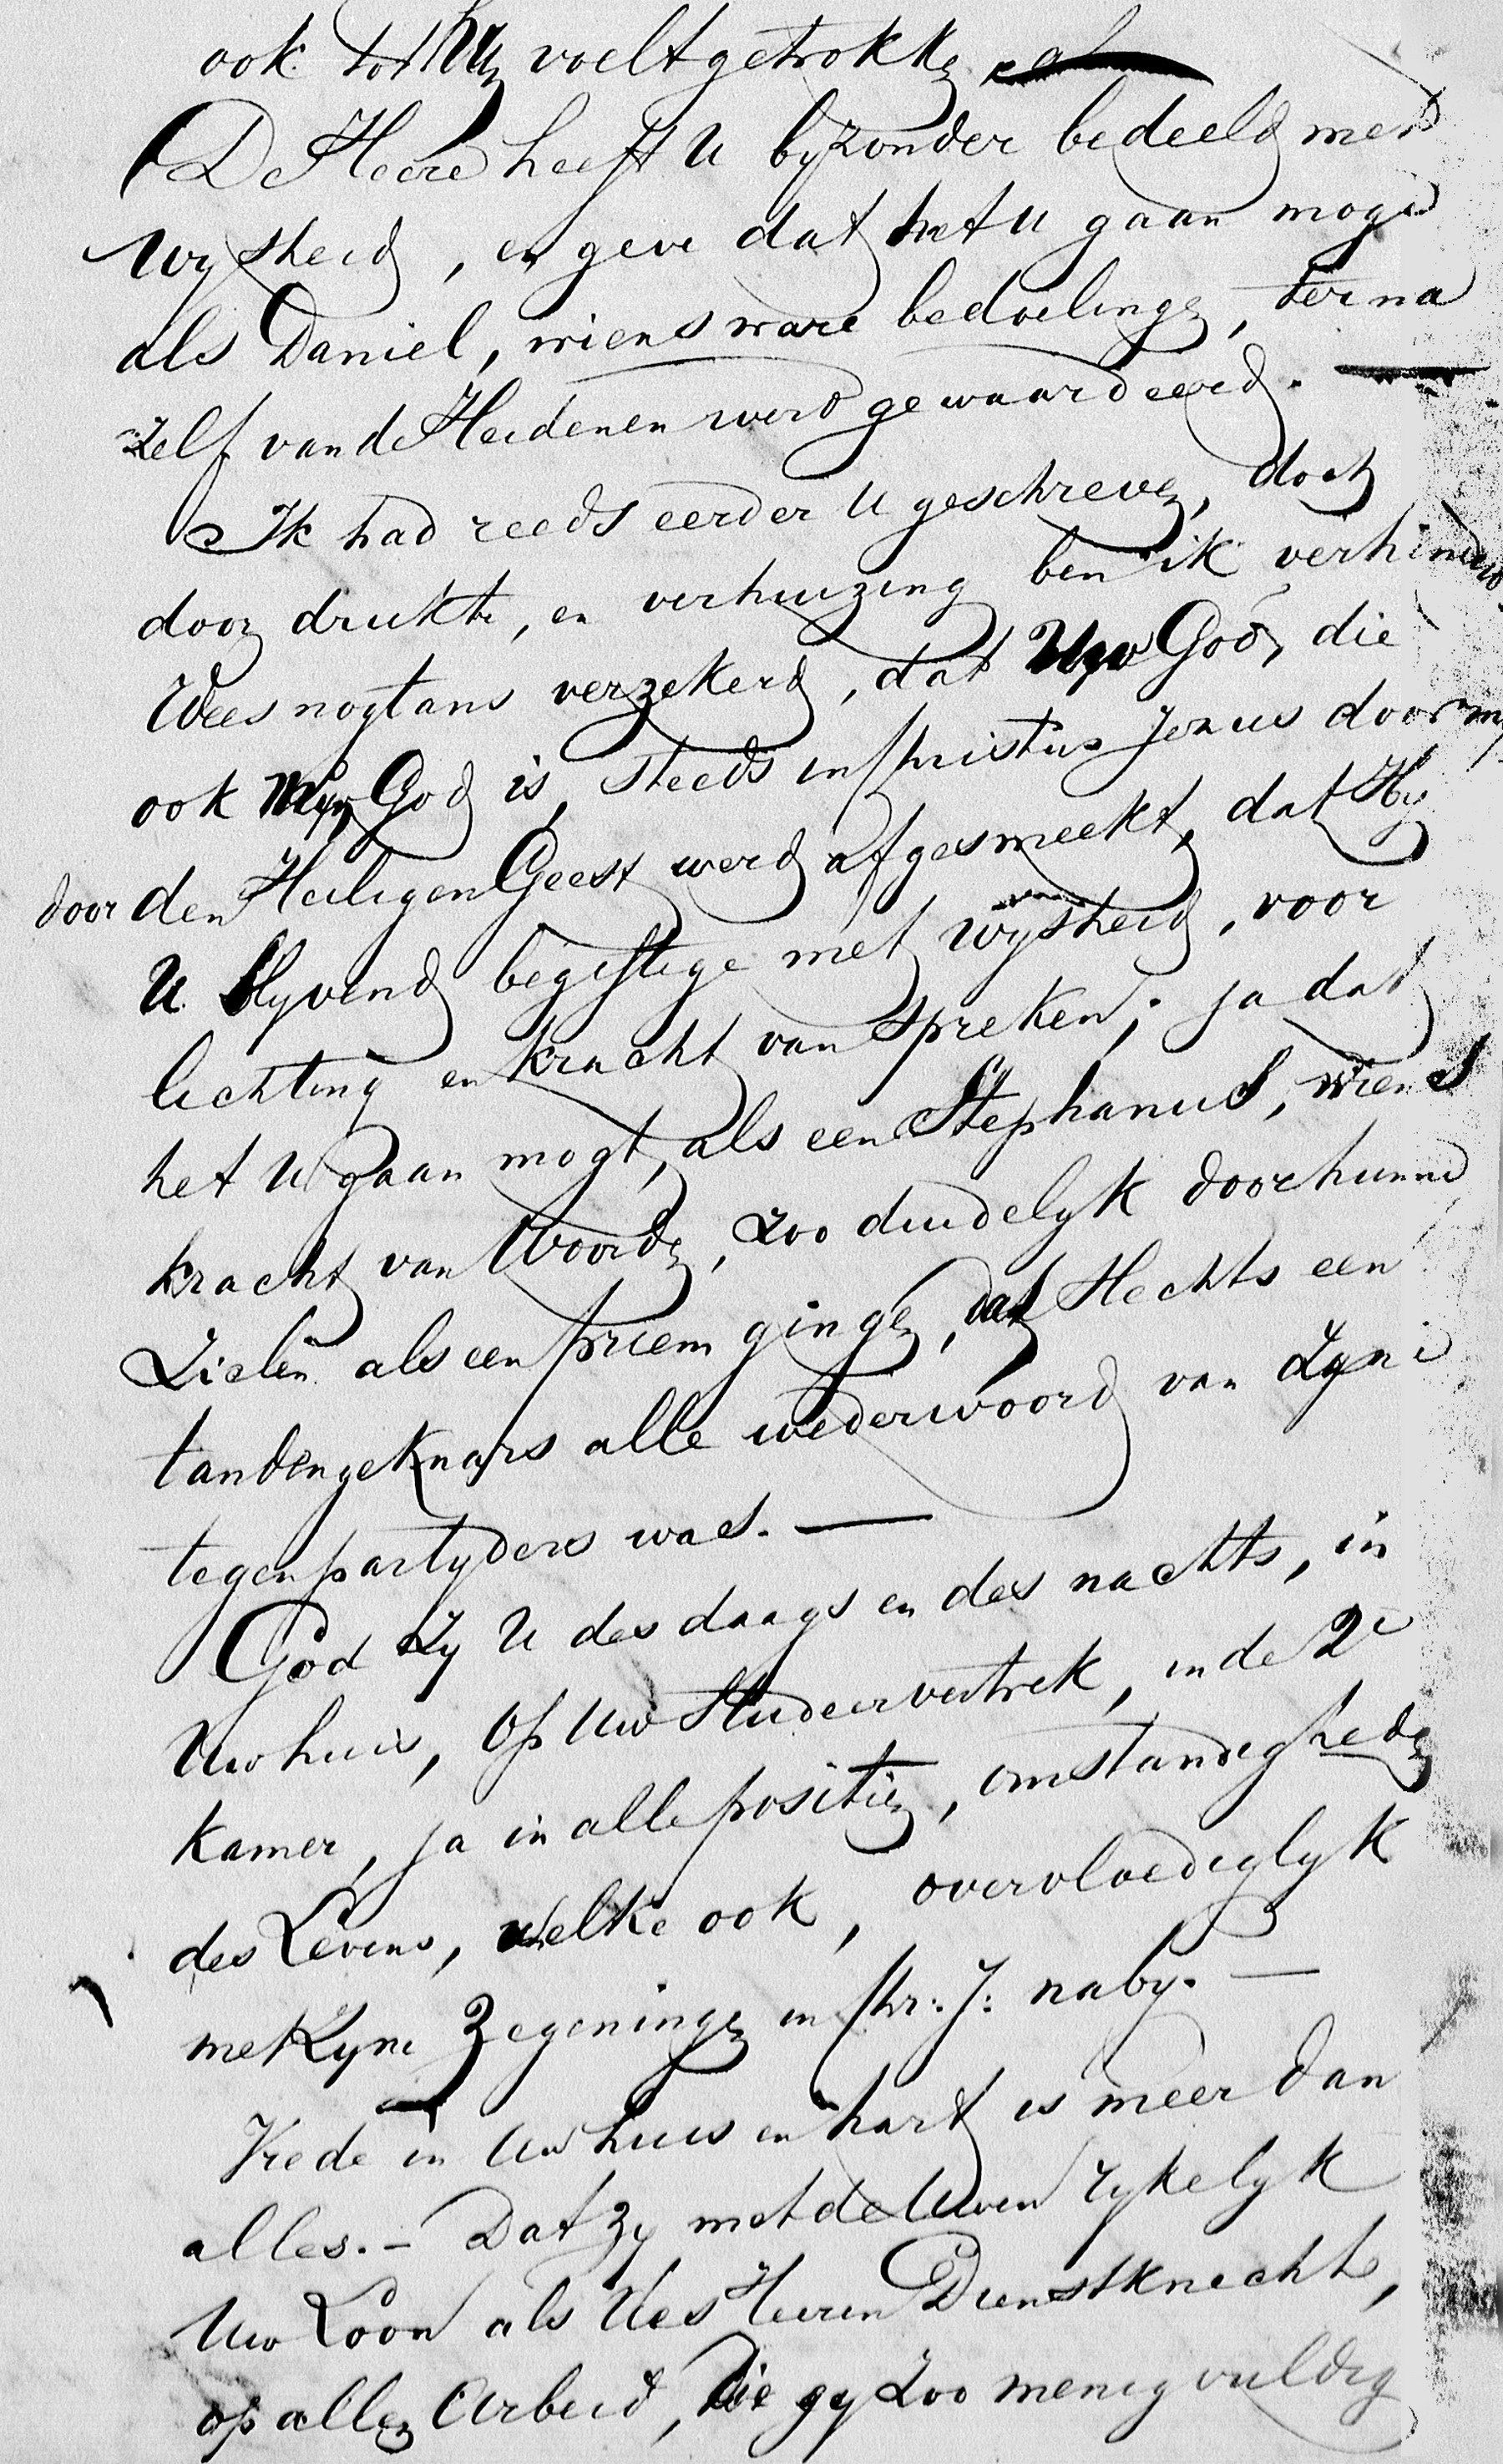 ook tot Uw voelt getrokken
De Heere heeft U byzonder bedeeld met
wysheid, en geve dat het U gaan moge
als Daniel, wiens ware bedoelingen, verna
zelf van de Heidenen werd gewaardeerd. —
Ik had reeds eerder U geschreven, doch
door drukte, en verhuizing ben ik verhinderd
Wees nogtans verzekerd, dat Uw God, die
ook Mijn God is, steeds in Christus Jezus door my
door den Heiligen Geest werd afgesmeekt, dat Hy
U blyvend begiftige met wysheid, voor
lichting en kracht van spreken; ja dat
het U gaan mogt, als een Stephanus, wiens
kracht van Woorden, zoo duidelyk door hunne
Zielen als een priem gingen, dat slechts een
tandengeknars alle wederwoord van zyne
tegenpartyders was. —
God zy U des daags en des nachts, in
Uw huis, op Uw Studeervertrek, in de 2e
kamer, ja in alle positien, omstandigheden
des Levens, welke ook, overvloediglyk
met zyne Zegeningen in Chr: J: naby. —
Vrede in Uw huis en hart is meer dan
alles. - Dat zy met de Uwen rykelyk
Uw Loon als des Heeren Dienstknecht,
op allen Arbeid, die gy zoo menigvuldig